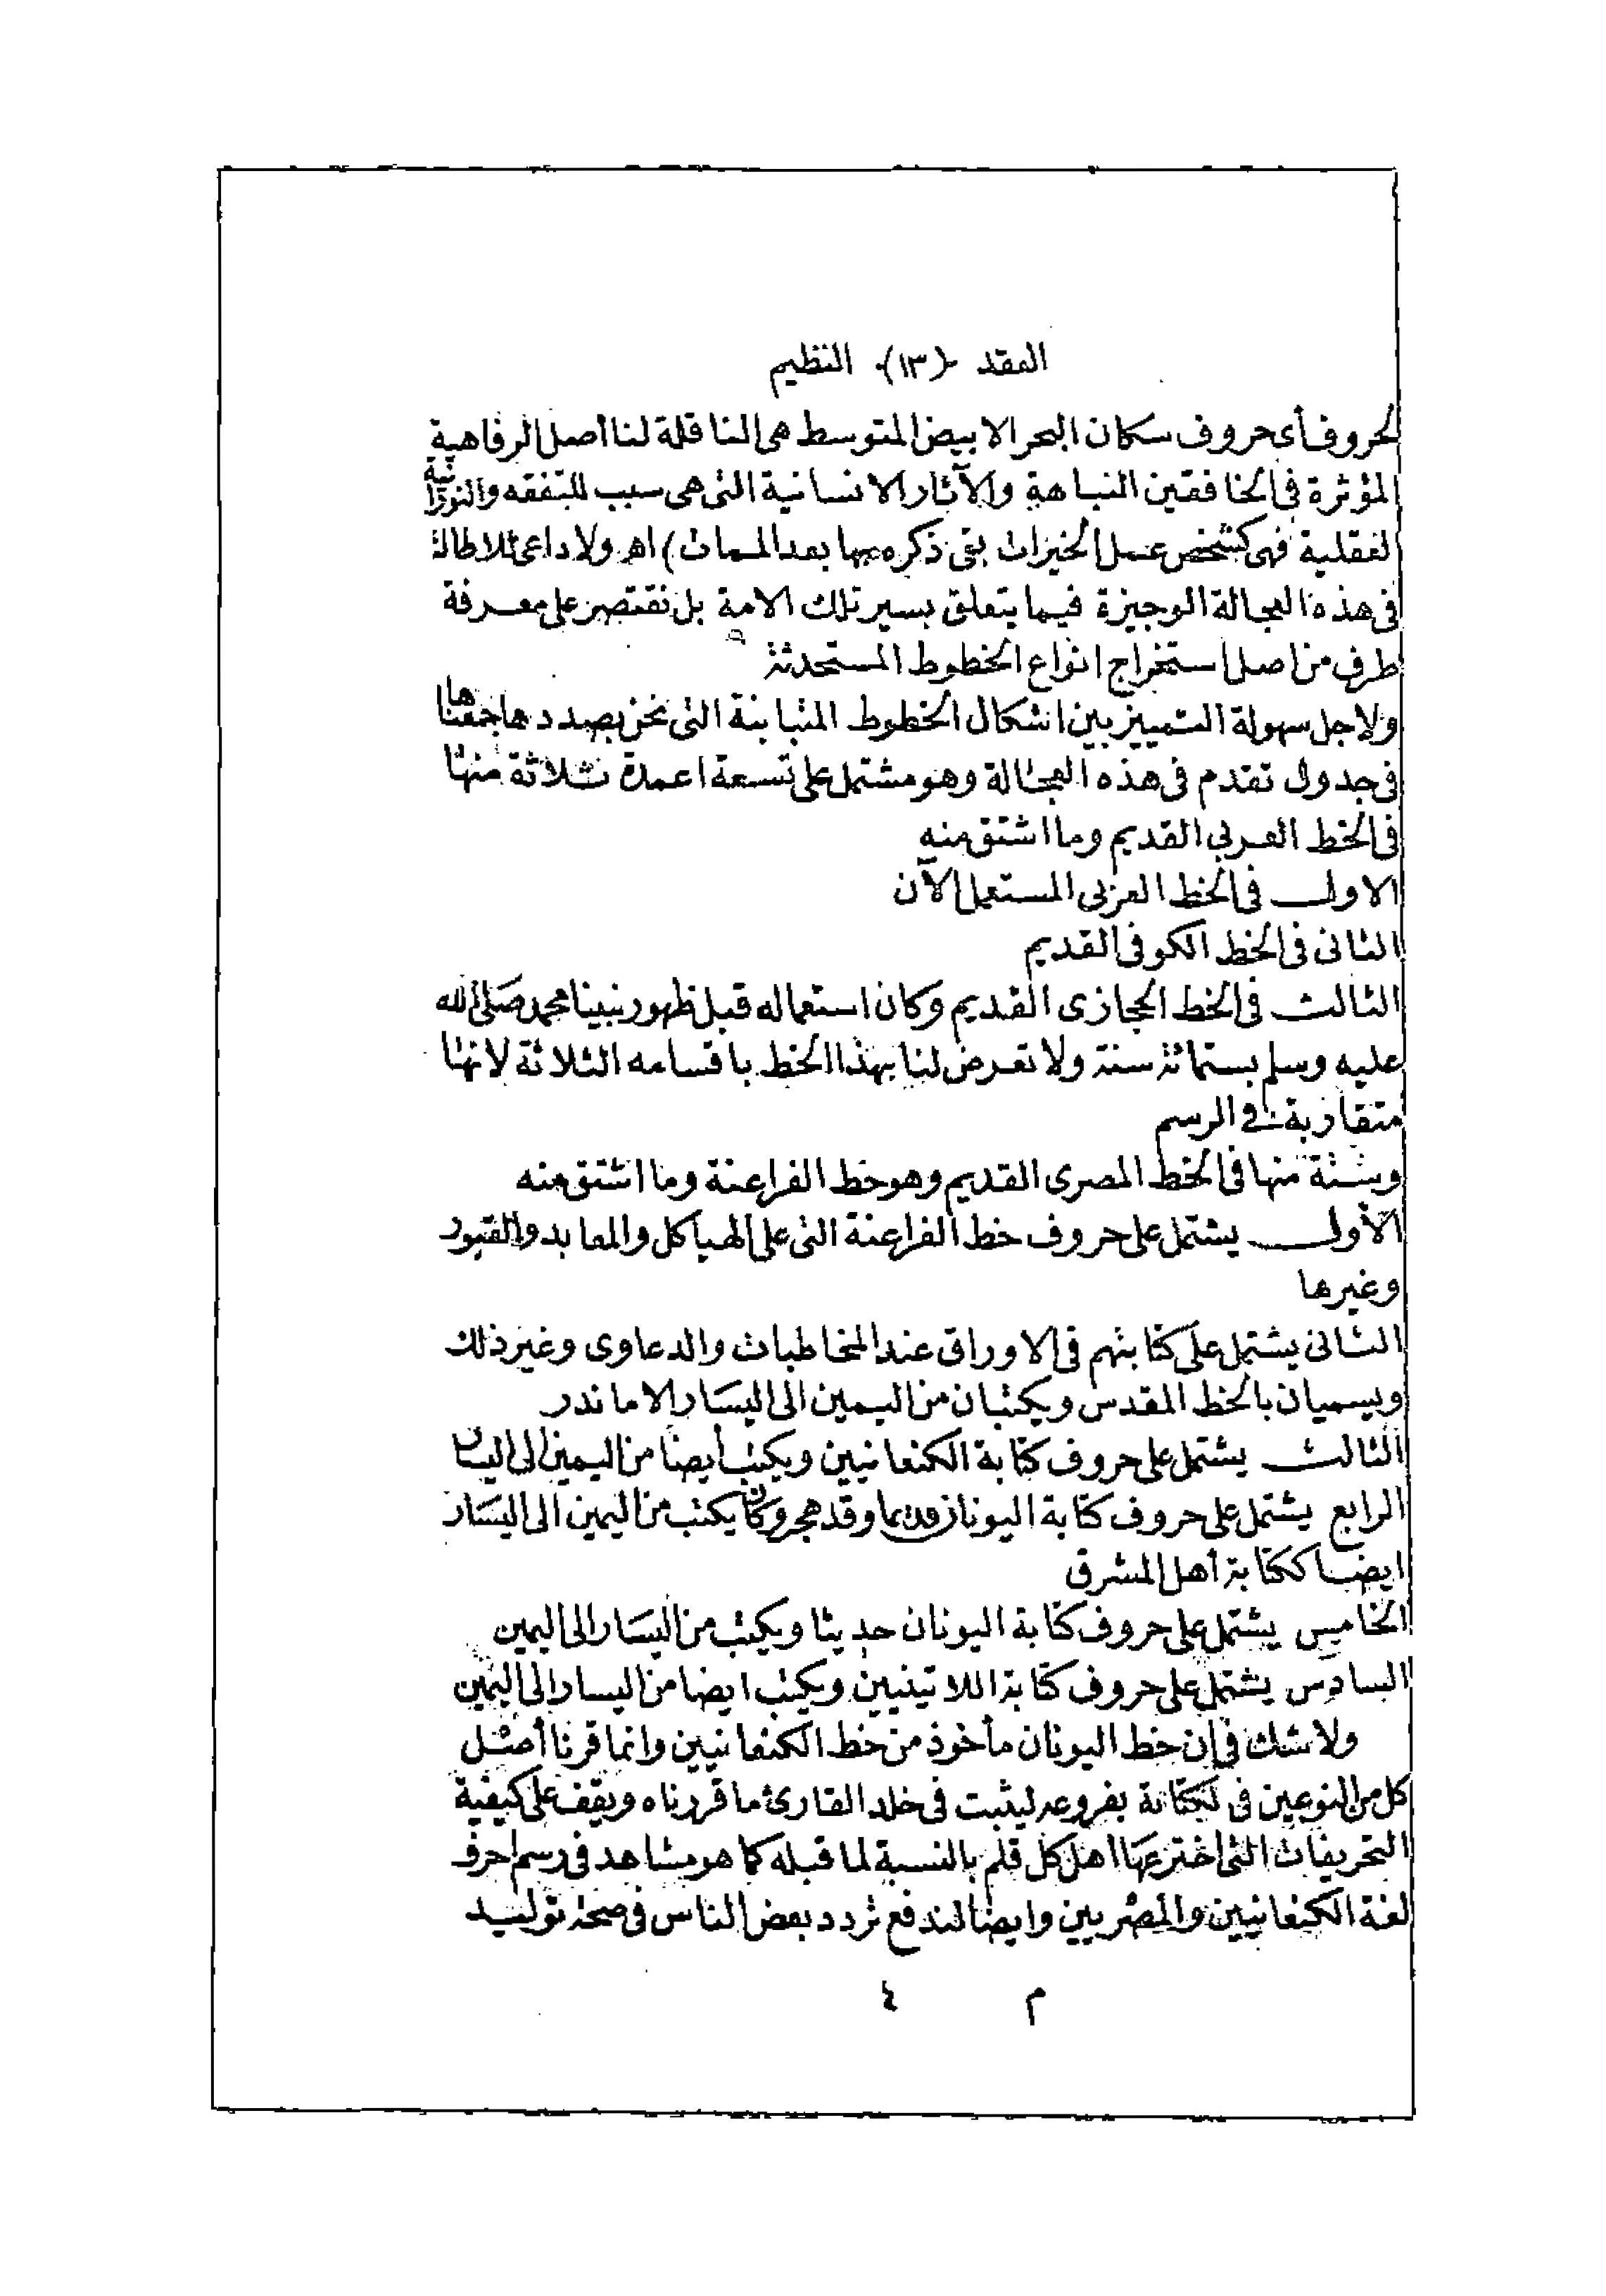 العقد (١٣) النظيم
لحروف أى حروف سكان البحر الابيض المتوسط هى الناقلة لنا أصل الرفاهية
المؤثرة فى الخافقين النباهة والآثار الانسانية التى هى سبب للتفقه والنورانية
لعقلية فهى كشخص عمل الخيرات بقى ذكره بها بعد الممات) اهـ ولا داعى للاطالة
فى هذه العجالة الوجيزة فيما يتعلق بسير تلك الامة بل نقتصر على معرفة
طرف من اصل استخراج انواع الخطوط المستحدثة
ولاجل سهولة التمييز بين اشكال الخطوط المتباينة التى نحن بصددها جمعناها
فى جدول تقدم فى هذه العجالة وهو مشتمل على تسعة اعمدة ثلاثة منها
فى الخط العربى القديم وما اشتق منه
الاول فى الخط العربى المستعمل الآن
الثانى فى الخط الكوفى القديم
الثالث فى الخط الحجازى القديم وكان استعماله قبل ظهور نبينا محمد صلى الله
عليه وسلم بستمائة سنة ولا تعرض لنا بهذا الخط باقسامه الثلاثة لانها
متقاربة فى الرسم
وستة منها فى الخط المصرى القديم وهو خط الفراعنة وما اشتق منه
الأول يشتمل على حروف خط الفراعنة التى على الهياكل والمعابد والقبور
وغيرها
الثانى يشتمل على كتابتهم فى الاوراق عند المخاطبات والدعاوى وغير ذلك
ويسميان بالخط المقدس ويكتبان من اليمين الى اليسار الا ما ندر
الثالث يشتمل على حروف كتابة الكنعانيين ويكتب أيضا من اليمين الى اليسار
الرابع يشتمل على حروف كتابة اليونان قديما وقد هجر وكان يكتب من اليمين الى اليسار
ايضا ككتابة أهل المشرق
الخامس يشتمل على حروف كتابة اليونان حديثا ويكتب من اليسار الى اليمين
السادس يشتمل على حروف كتابة اللاتينيين ويكتب ايضا من اليسار الى اليمين
ولا شك فى ان خط اليونان مأخوذ من خط الكنعانيين وانما قرنا أصل
كل من النوعين فى الكتابة بفروعه ليثبت فى خلد القارئ ما قررناه ويقف على كيفية
التحريفات التى اخترعها اهل كل قلم بالنسبة لما قبله كما هو مشاهد فى رسم احرف
لغة الكنعانيين والمصريين وايضا لندفع تردد بعض الناس فى صحة توليد
م ٤